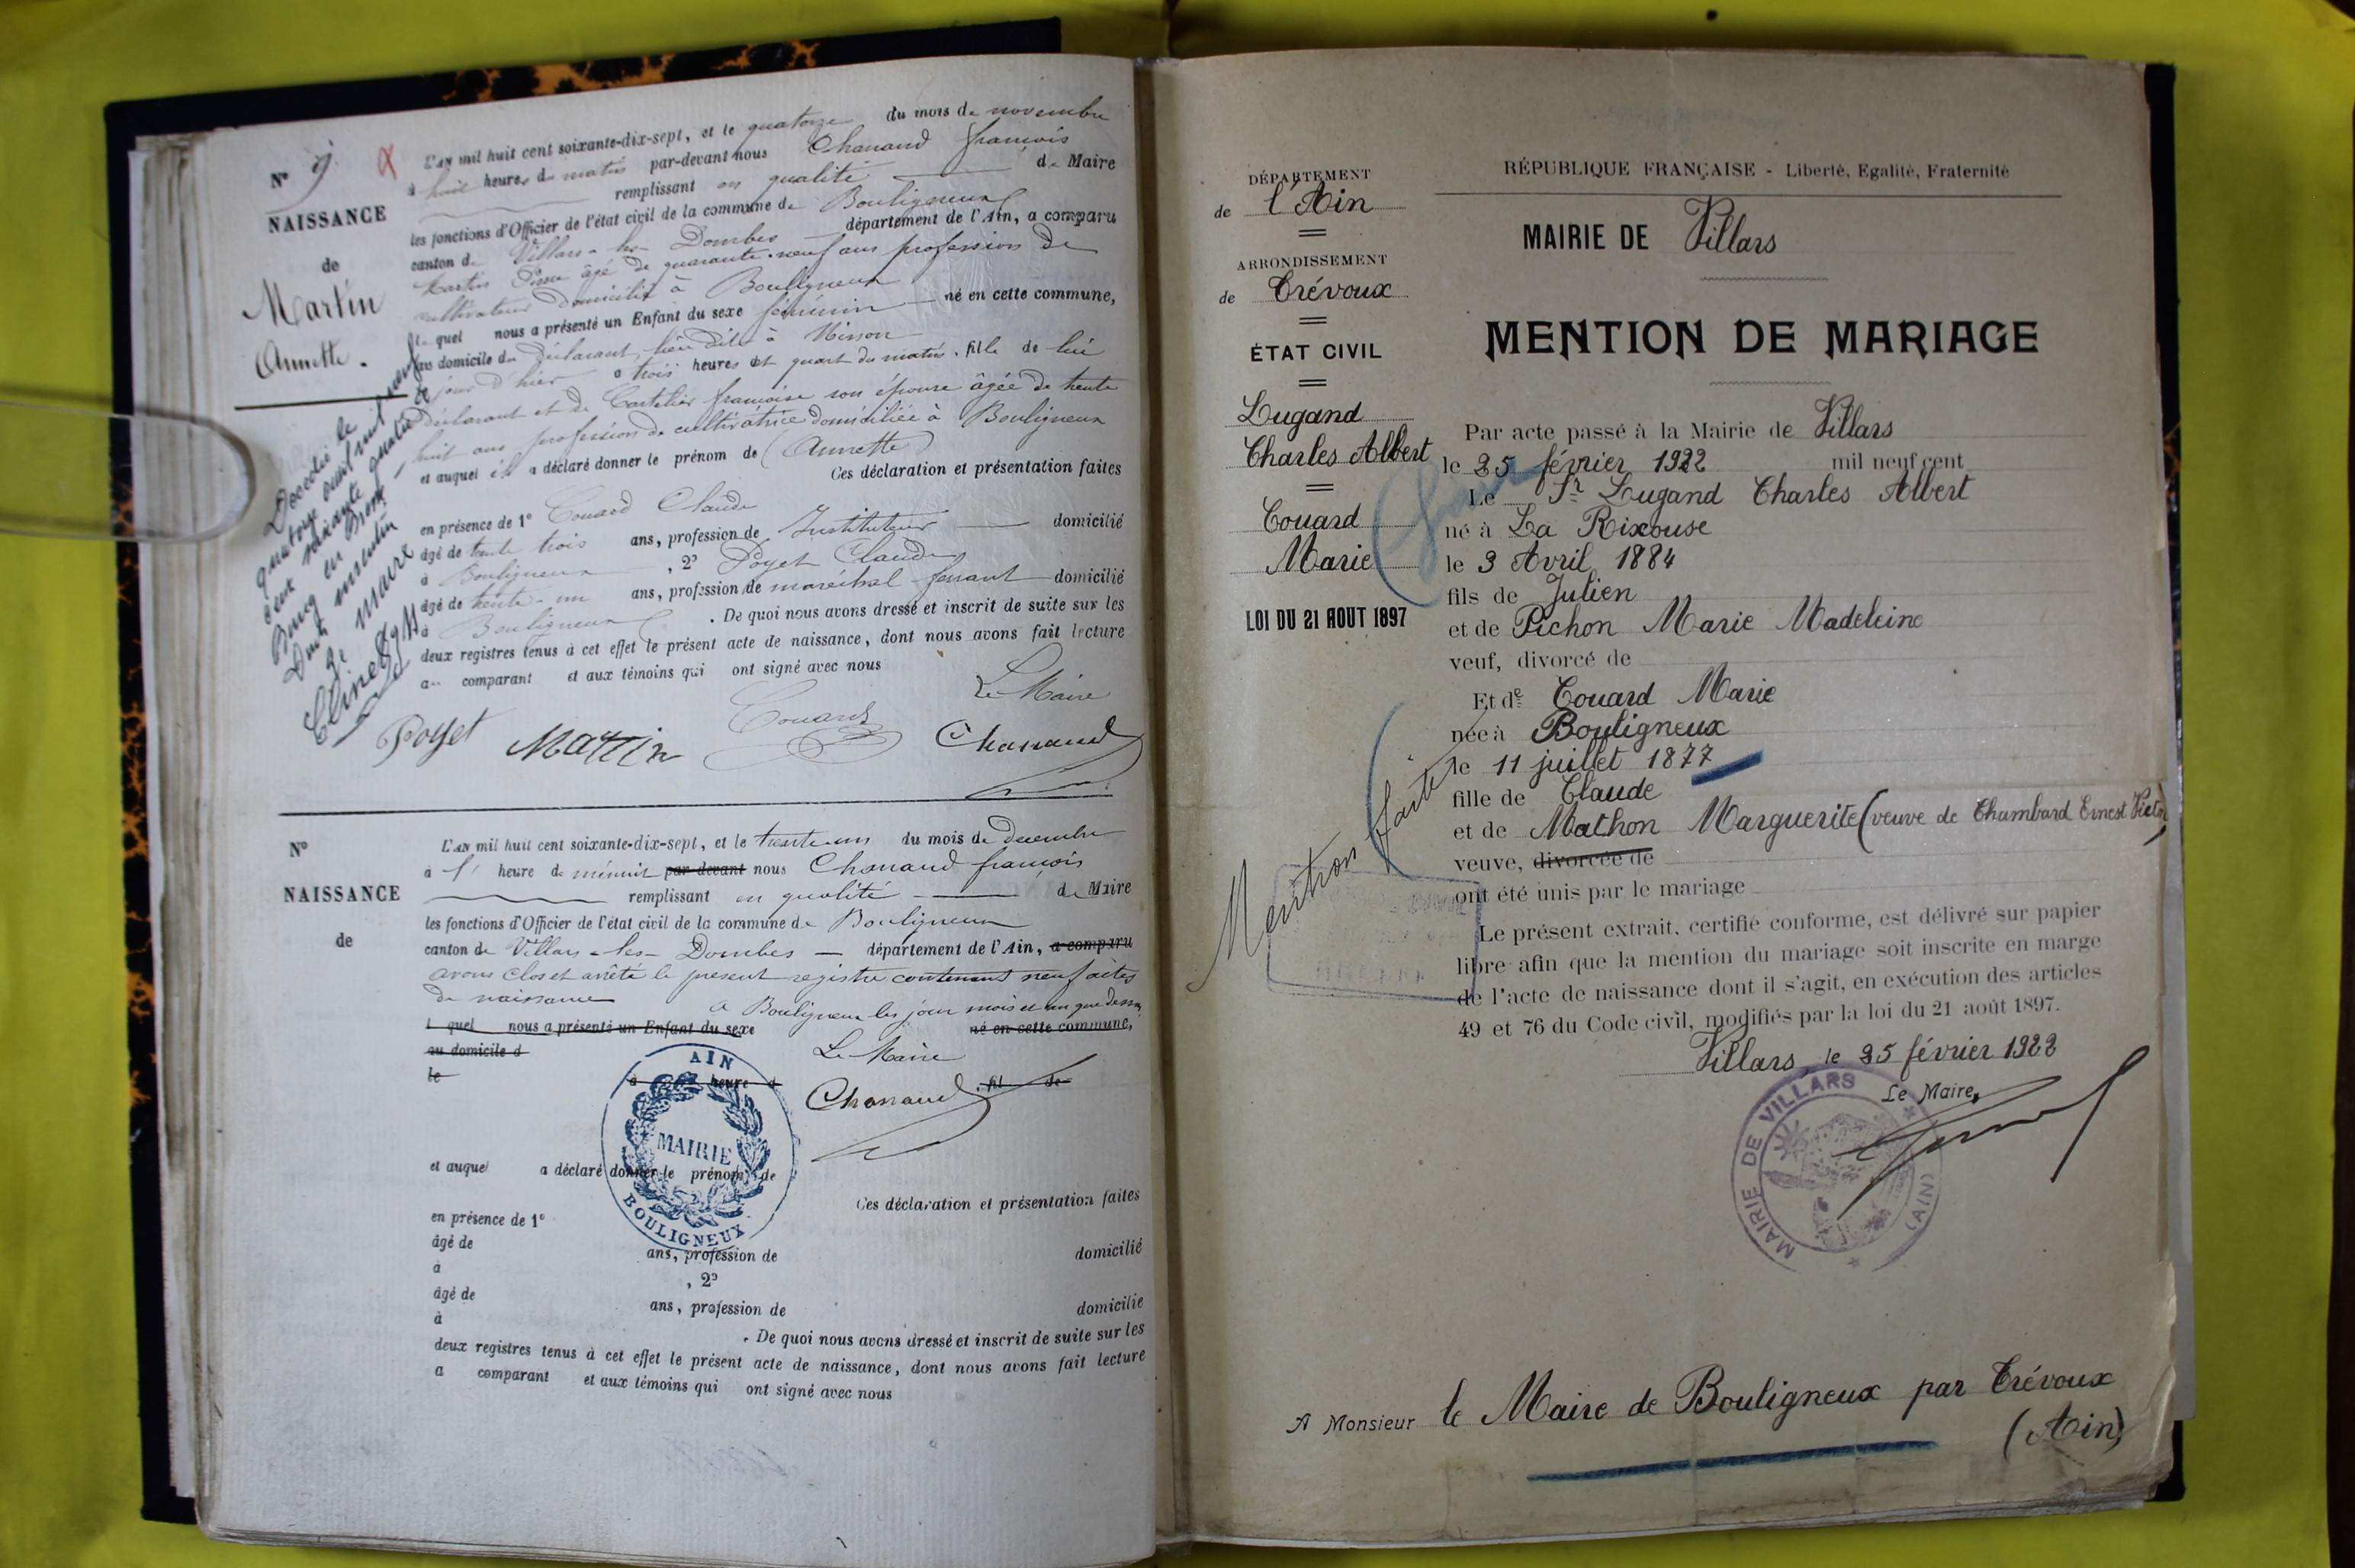 N° 9
NAISSANCE
de
Martin
Annette.
L'AN mil huit cent soixante-dix-sept, et le quatorze du mois de novembre
à huit heures du matin par-devant nous Chanaud françois
remplissant en qualité de Maire
les fonctions d'Officier de l'état civil de la commune de Bouligneux
canton de Villars-les-Dombes département de l'Ain, a comparu
Martin Pierre âgé de quarante-neuf ans profession de
cultivateur domicilié à Bouligneux
le quel nous a présenté un Enfant du sexe féminin né en cette commune,
au domicile du déclarant, lieu dit à
jour d'hier à trois heures et quart du matin, fille de lui
déclarant et de françoise son épouse âgée de trente
huit ans profession de cultivatrice domiciliée à Bouligneux
et auquel il a déclaré donner le prénom de (Annette)
Ces déclaration et présentation faites
en présence de 1° Couard Claude
âgé de trente trois ans, profession de Instituteur domicilié
à Bouligneux, 2° Poyet Claude
âgé de trente-un ans, profession de maréchal ferrant domicilié
à Bouligneux. De quoi nous avons dressé et inscrit de suite sur les
deux registres tenus à cet effet le présent acte de naissance, dont nous avons fait lecture
au comparant et aux témoins qui ont signé avec nous
Le Maire
Poyet Martin Couard Chanaud
Décédée le
quatorze avril mil neuf
cent soixante quatre à
Bourg en Bresse
Dont mention
Le Maire
N°
NAISSANCE
de
L'AN mil huit cent soixante-dix-sept, et le trente-un du mois de décembre
à l' heure de minuit par-devant nous Chanaud françois
remplissant en qualité de Maire
les fonctions d'Officier de l'état civil de la commune de Bouligneux
canton de Villars-les-Dombes département de l'Ain, a comparu
avons clos et arrêté le présent registre contenant neuf actes
de naissance
A Bouligneux les jour mois et an que dessus
l quel nous a présenté un Enfant du sexe né en cette commune,
au domicile d
Le Maire
le à heure d , fil de
Chanaud
AIN
MAIRIE
BOULIGNEUX
et auquel a déclaré donner le prénom de
Ces déclaration et présentation faites
en présence de 1°
âgé de ans, profession de domicilié
à , 2°
âgé de ans, profession de domicilié
à . De quoi nous avons dressé et inscrit de suite sur les
deux registres tenus à cet effet le présent acte de naissance, dont nous avons fait lecture
a comparant et aux témoins qui ont signé avec nous
DÉPARTEMENT
de l'Ain
ARRONDISSEMENT
de Trévoux
ÉTAT CIVIL
Lugand
Charles Albert
Couard
Marie
LOI DU 21 AOUT 1897
Mention faite
RÉPUBLIQUE FRANÇAISE - Liberté, Egalité, Fraternité
MAIRIE DE Villars
MENTION DE MARIAGE
Par acte passé à la Mairie de Villars
le 25 février 1922 mil neuf cent
Le Sr Lugand Charles Albert
né à La Rixouse
le 3 Avril 1884
fils de Julien
et de Pichon Marie Madeleine
veuf, divorcé de
Et de Couard Marie
née à Bouligneux
le 11 juillet 1877
fille de Claude
et de Mathon Marguerite (veuve de Chambard Ernest Victor)
veuve, divorcée de
ont été unis par le mariage
Le présent extrait, certifié conforme, est délivré sur papier
libre afin que la mention du mariage soit inscrite en marge
de l'acte de naissance dont il s'agit, en exécution des articles
49 et 76 du Code civil, modifiés par la loi du 21 août 1897.
Villars, le 25 février 1922
Le Maire,
MAIRIE DE VILLARS
(AIN)
A Monsieur le Maire de Bouligneux par Trévoux
(Ain)